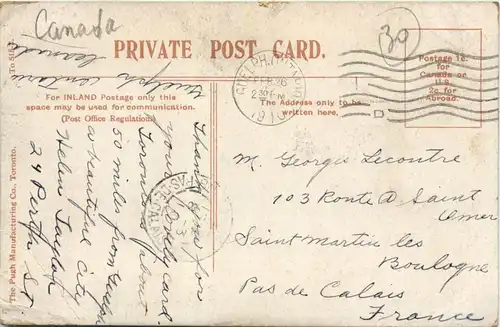 Canada
30
PRIVATE POST CARD.
Postage 1c.
for
Canada or
U.S.
2c. for
Abroad.
For INLAND Postage only this
space may be used for communication.
(Post Office Regulations)
The Address only to be
written here.
GUELPH, ONTARIO
FEB 26
2 30 PM
1910
Guelph Ontario
Thank you for
your lovely card.
Toronto is about
50 miles from Guelph
a beautiful city
Helen Taylor
24 Perth St.
M. Georges Lecontre
103 Route d. Saint
Omer
Saint Martin les
Boulogne
Pas de Calais
France
The Pugh Manufacturing Co., Toronto.